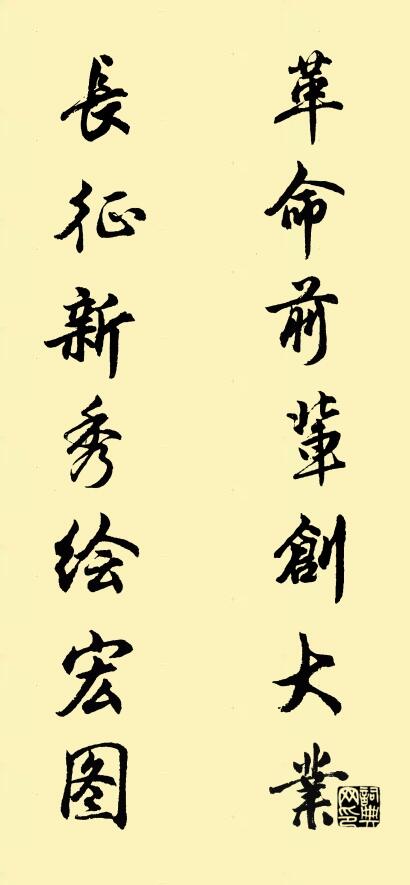 革命前輩創大業
長征新秀绘宏图
詞典網印